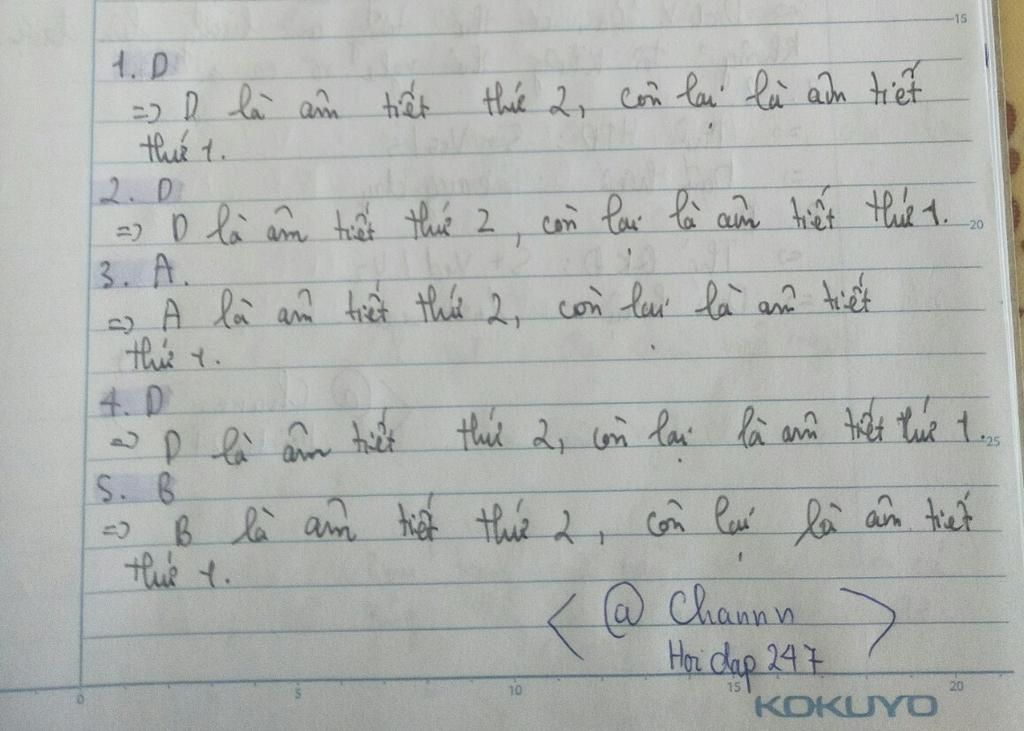 15
1. D
=> D là âm tiết thứ 2, còn lại là âm tiết
thứ 1.
2. D
=> D là âm tiết thứ 2, còn lại là âm tiết thứ 1.
20
3. A.
=> A là âm tiết thứ 2, còn lại là âm tiết
thứ 1.
4. D
=> D là âm tiết thứ 2, còn lại là âm tiết thứ 1.
25
5. B
=> B là âm tiết thứ 2, còn lại là âm tiết
thứ 1.
< @ Channn >
Hoidap247
0 5 10 15 20
KOKUYO